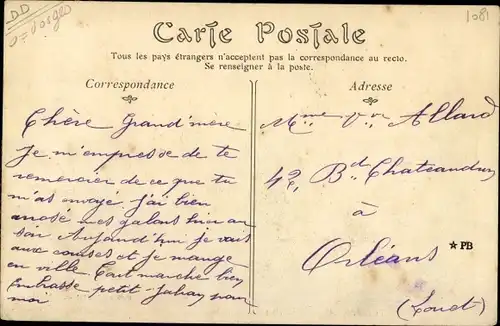 DD
Vosges
1081
Carte Postale
Tous les pays étrangers n'acceptent pas la correspondance au recto.
Se renseigner à la poste.
Correspondance
Adresse
Chère Grand'mère
Je m'empresse de te
remercier de ce que tu
m'as envoyé j'ai bien
arrosé mes galons hier au
soir Aujourd'hui je vais
aux courses et je mange
en ville. Tout marche bien
Embrasse petit pour
moi
Mme Vve Allard
42, Bd Chateaudun
à
Orléans
(Loiret)
★PB